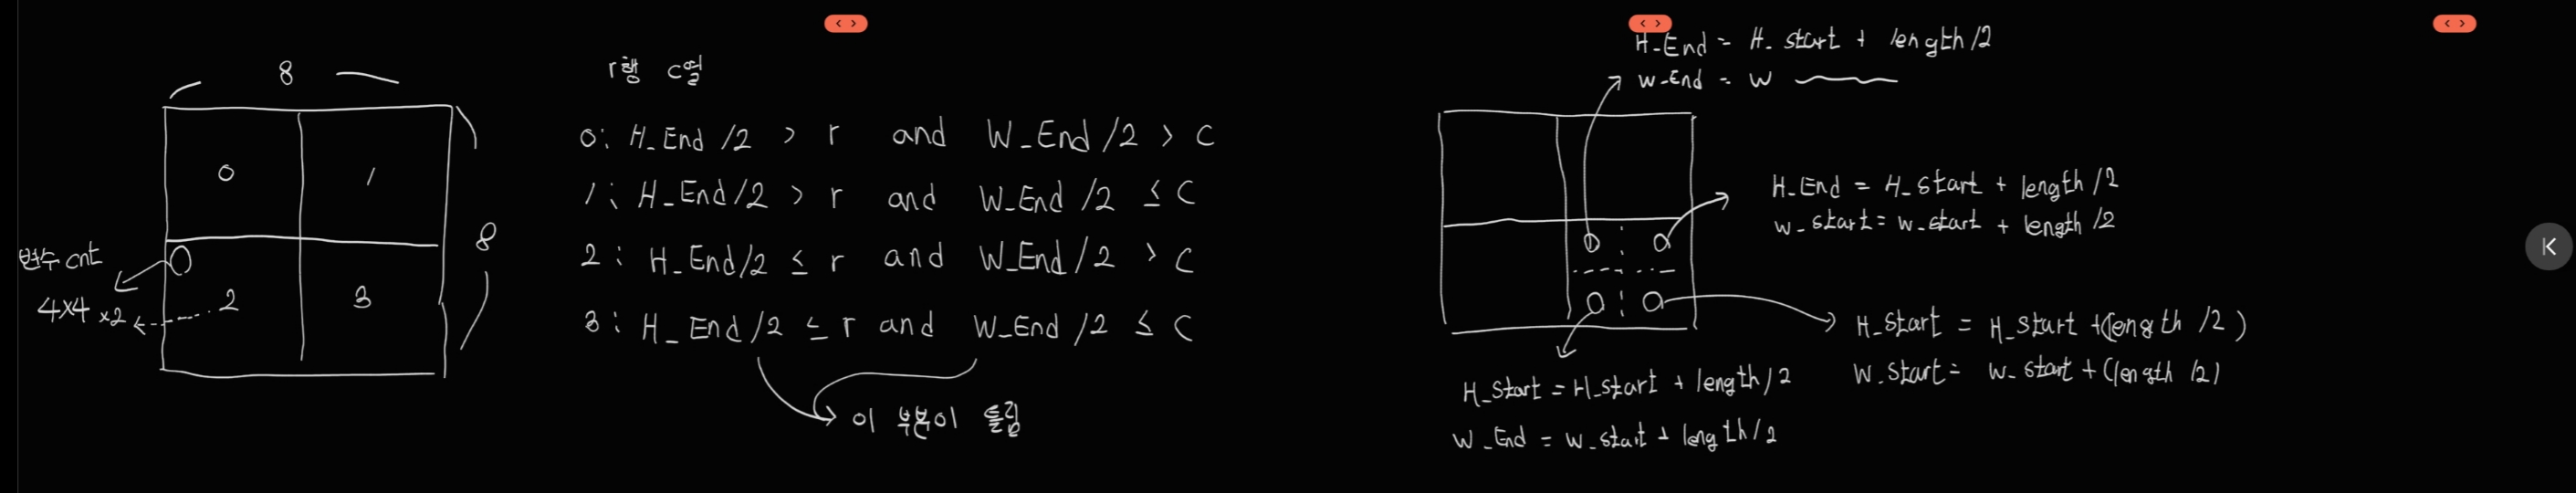 8
0
1
8
변수 cnt
4×4 ×2
2
3
r행 c열
0: H_End /2 > r and W_End /2 > C
1: H_End/2 > r and W_End /2 ≤ C
2: H_End/2 ≤ r and W_End /2 > C
3: H_End /2 ≤ r and W_End /2 ≤ C
이 부분이 틀림
H_End = H_start + length/2
w_End = w
H_End = H_start + length/2
w_start = w_start + length/2
H_start = H_start + (length /2)
W_start = w_start + (length /2)
H_start = H_start + length/2
w_End = w_start + length/2